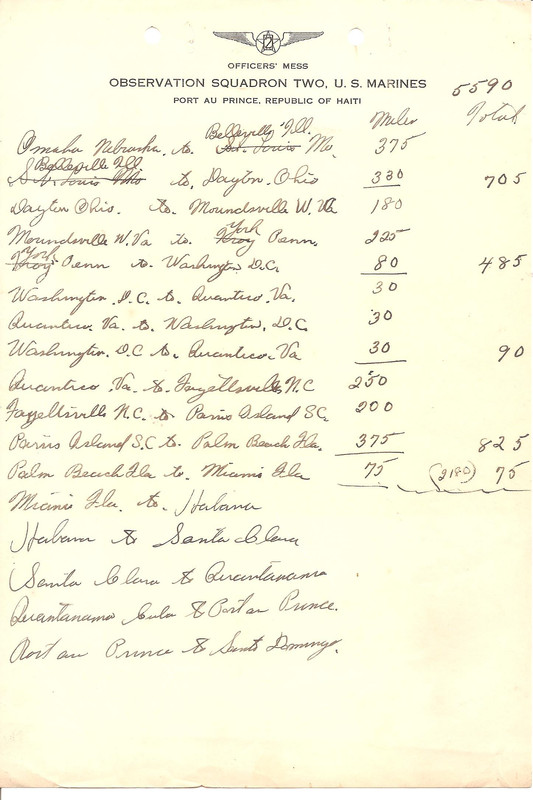 2
OFFICERS' MESS
OBSERVATION SQUADRON TWO, U. S. MARINES
PORT AU PRINCE, REPUBLIC OF HAITI
5590
Miles Total
Belleville Ill.
Omaha Nebraska. to St. Louis Mo. 375
Belleville Ill.
St. Louis Mo to, Dayton. Ohio 330 705
Dayton Ohio. to. Moundsville W. Va 180
York
Moundsville W. Va to. Troy Penn. 225
York
Troy Penn to. Washington D.C. 80 485
Washington D.C. to Quantico. Va. 30
Quantico. Va. to. Washington, D.C. 30
Washington. D.C to. Quantico. Va 30 90
Quantico Va. to Fayettsville N.C 250
Fayettsville N.C. to Paris Island S.C. 200
Parris Island S.C to. Palm Beach Fla. 375 825
Palm Beach Fla to. Miami Fla 75 (2180) 75
Miami Fla. to. Habana
Habana to Santa Clara
Santa Clara to Quantanama
Quantanamo Cuba to Port au Prince.
Port au Prince to Santo Domingo.